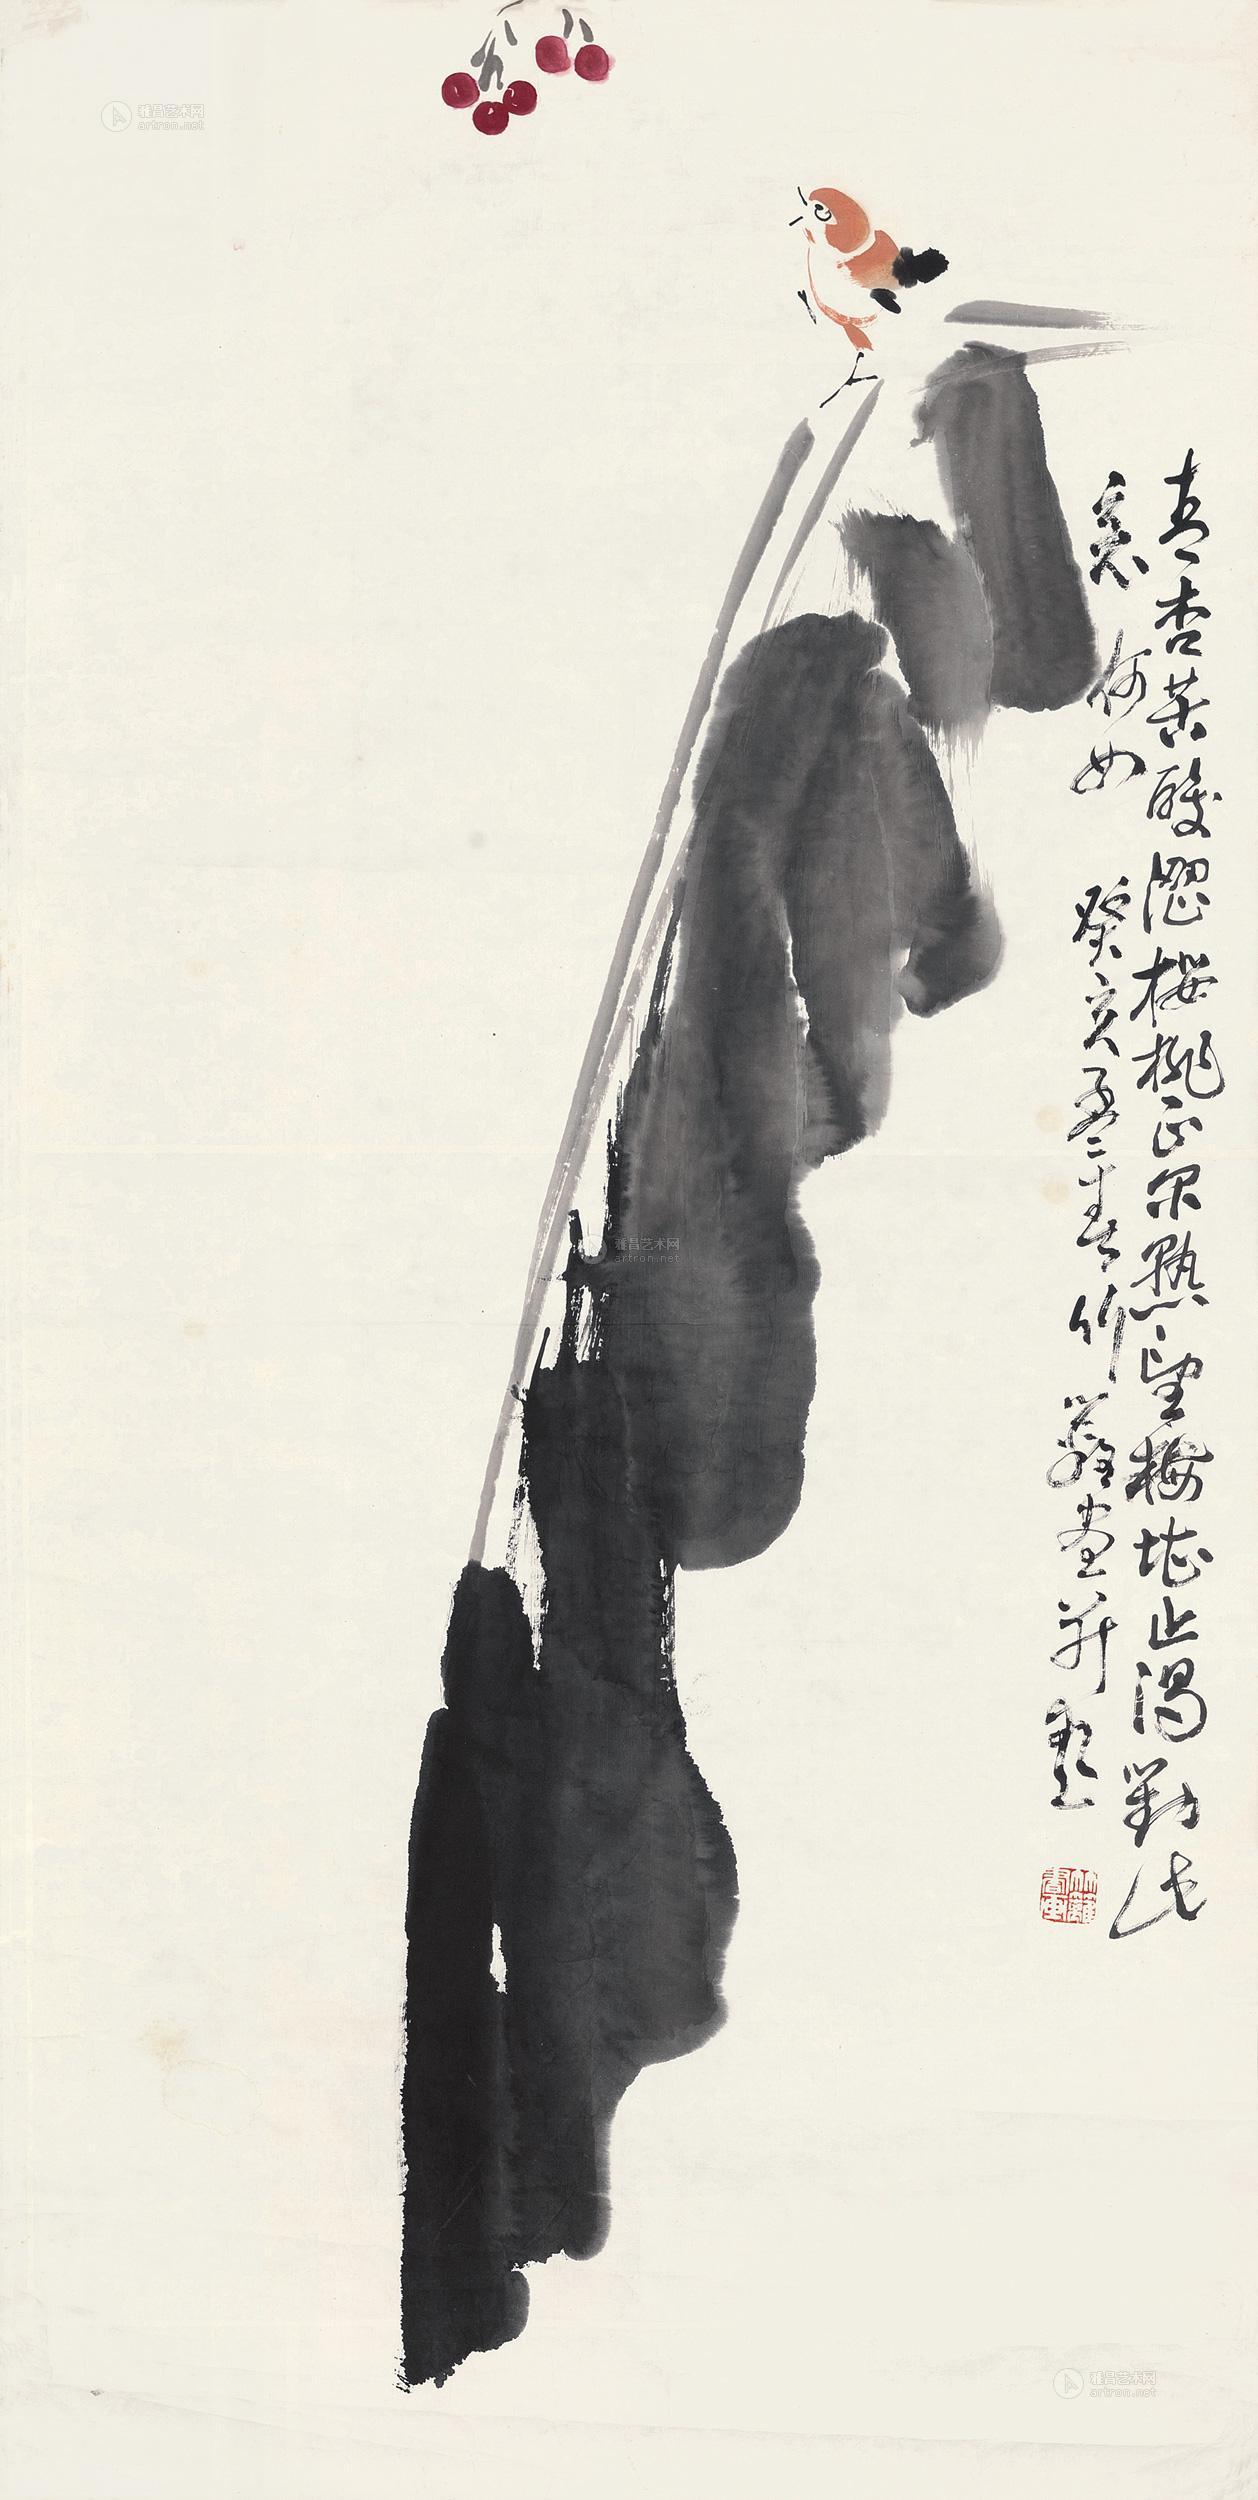 雅昌艺术网
artron.net
青杏苦酸澀櫻桃正尔熟望梅堪止渴對此
意何如 癸亥孟春竹畫并題
雅昌艺术网
artron.net
雅昌艺术网
artron.net